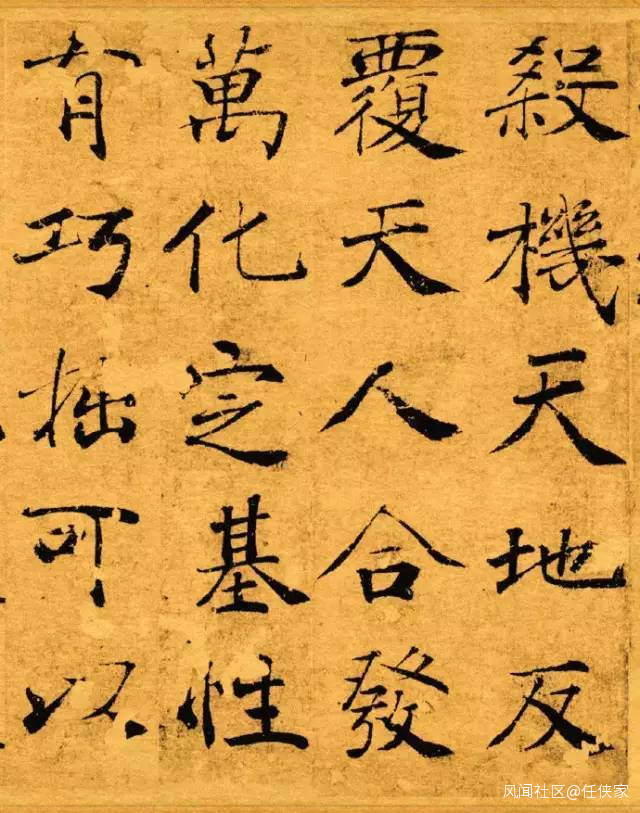 殺機天地反
覆天人合發
萬化定基性
有巧拙可以
风闻社区@任侠家